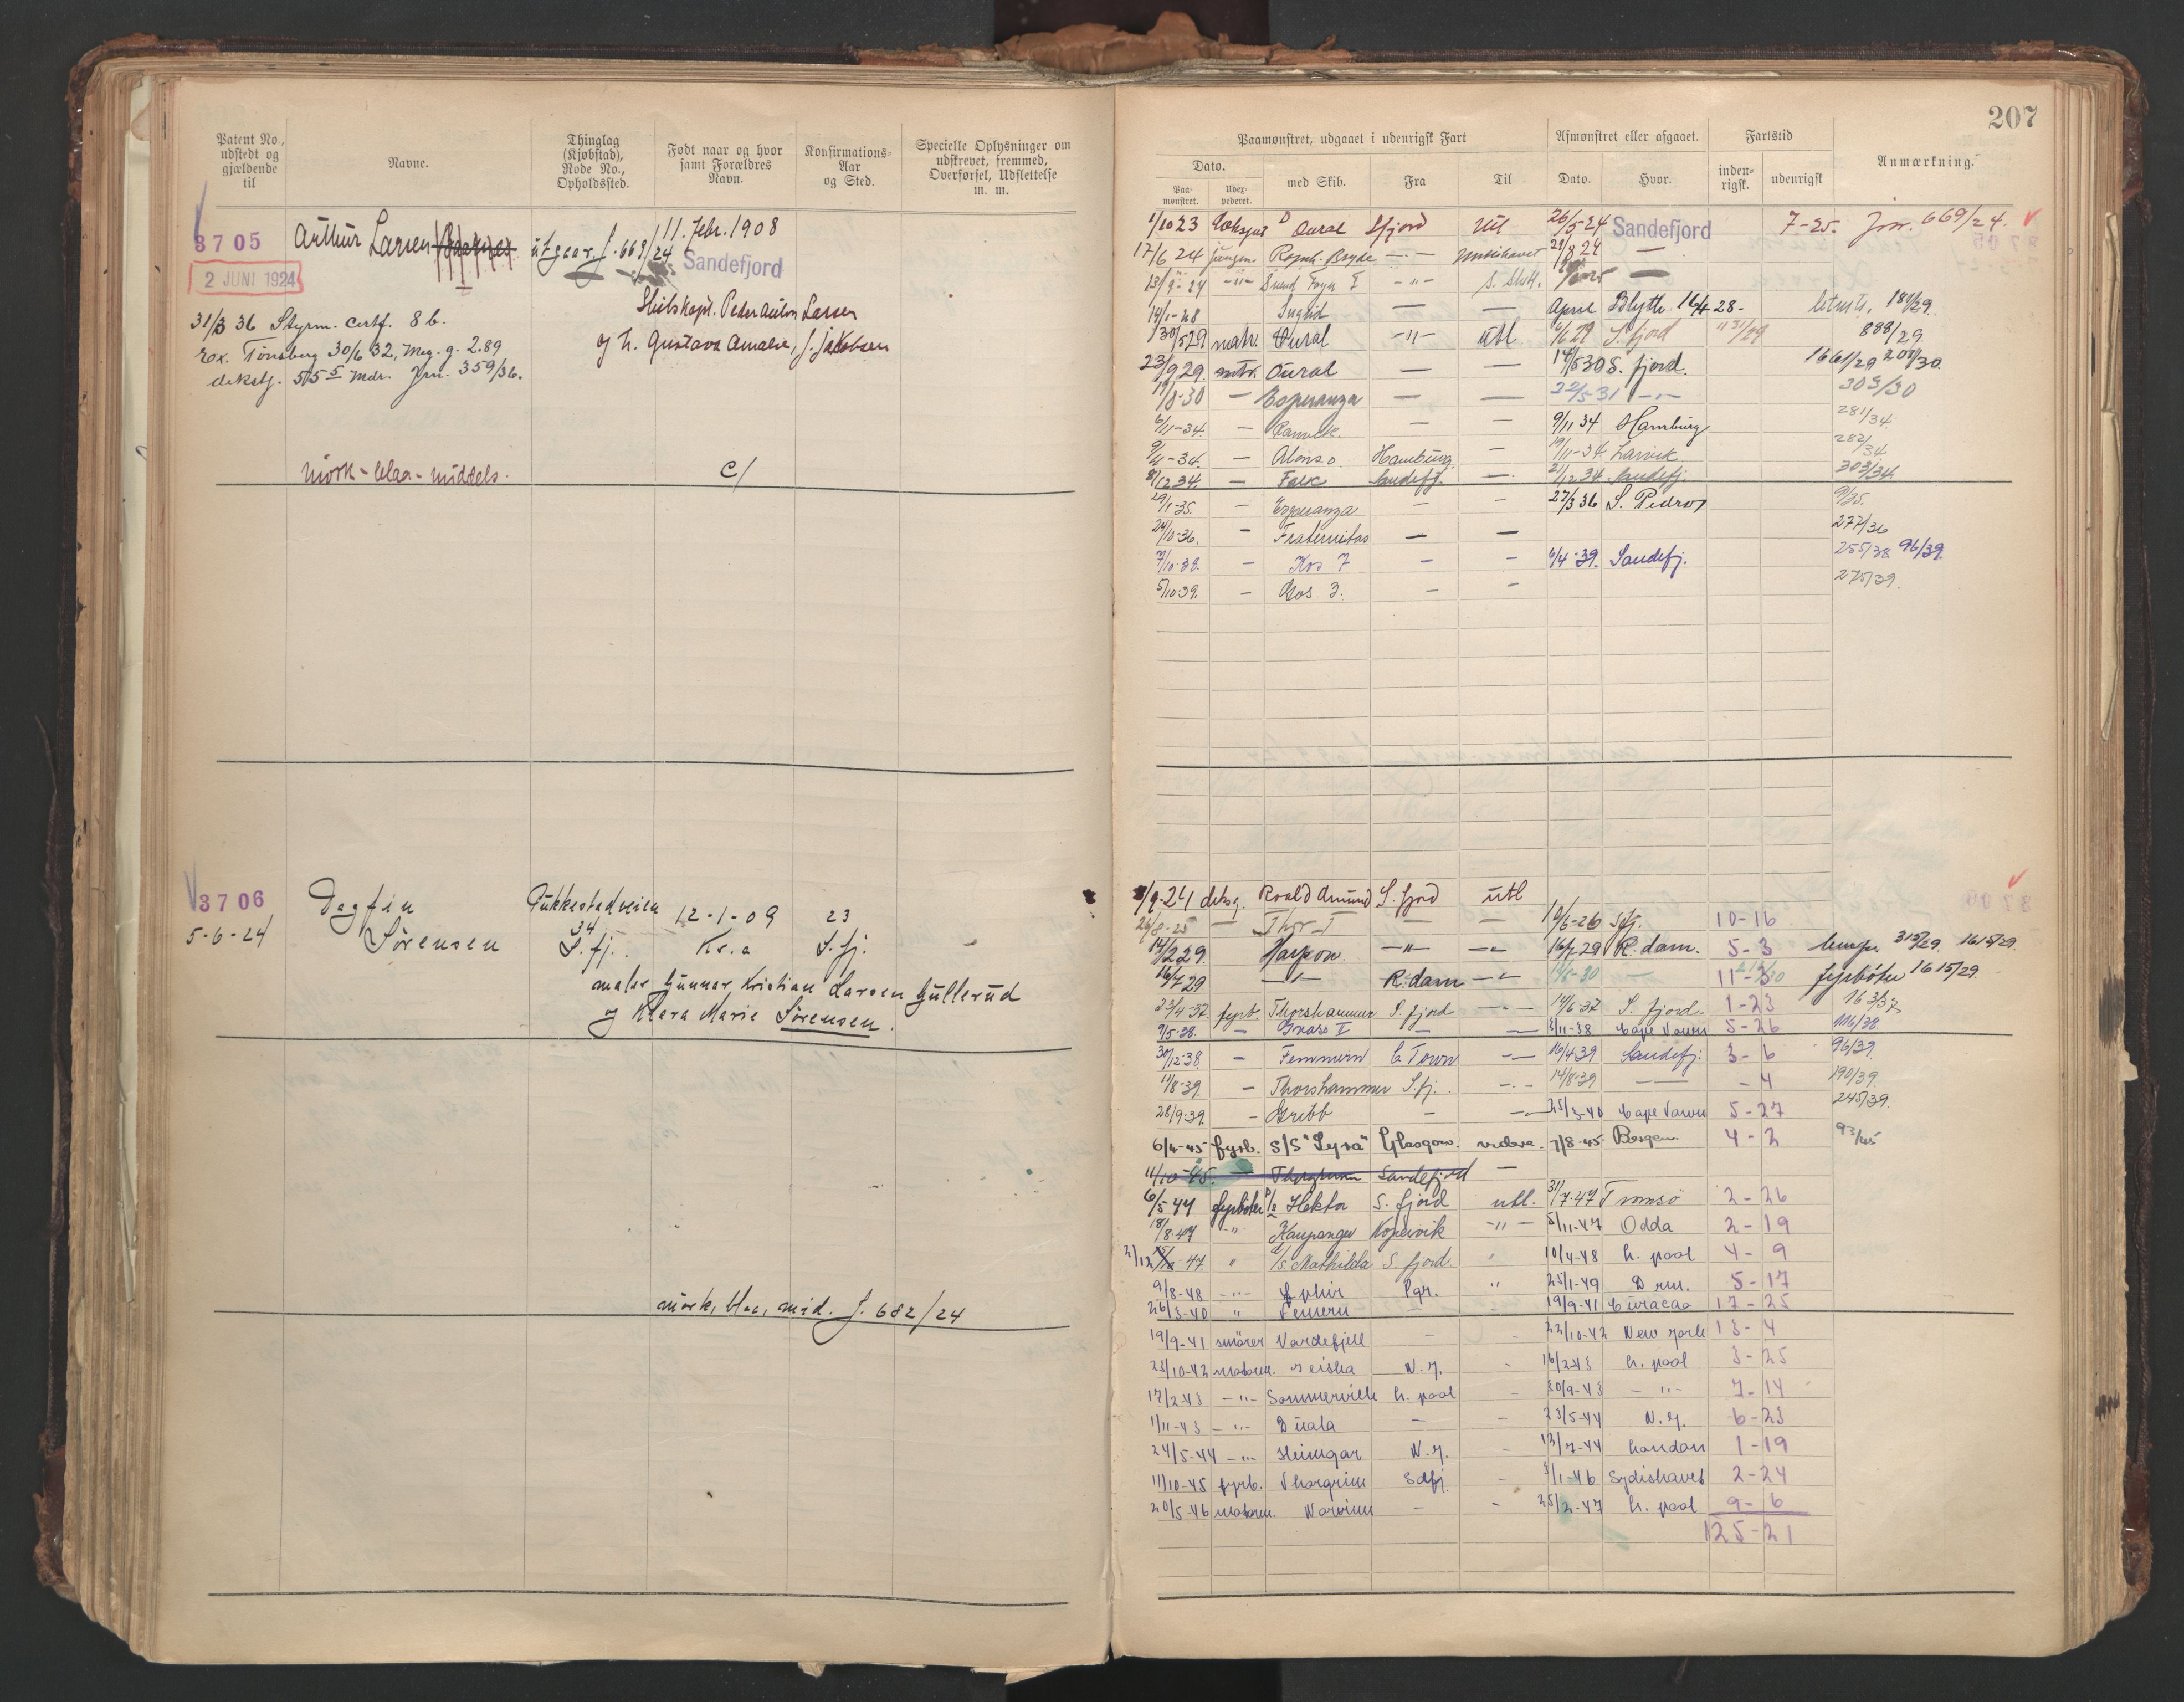 207
Patent No., udstedt og gjældende til
Navne.
Thinglag (Kjøbstad), Rode No., Opholdssted.
Født naar og hvor samt Forældres Navn.
Konfirmations-Aar og Sted.
Specielle Oplysninger om udskrevet, fremmed, Overførsel, Udslettelse m. m.
Paamønstret, udgaaet i udenrigsk Fart
Afmønstret eller afgaaet.
Fartstid
Anmærkning.
Dato.
Paa-mønstret.
Uder-pederet.
med Skib.
Fra
Til
Dato.
Hvor.
inden-rigsk.
udenrigsk
3705 Arthur Larsen utgaar J. 669/24 11. Febr. 1908
2 JUNI 1924 Sandefjord
31/3 36 Styrm. certf. 8 b.
Skibskapt. Peder Anton Larsen
og h. Gustava Amalie, f. Jakobsen
Tønsberg 30/6 32, Meg. g. 2.89
Jrn. 359/36.
mørk - blaa - middels. C/
1/10 23 Aural Sfjord Utl 26/5-24 Sandefjord 7-25. Jrn. 669/24.
17/6 24 jungm. Regnh. Bryde -"- 29/8 24 —
13/9-24 -"- Svend Foyn I -"- S. Shetl. —
14/1-28 Ingrid — — April Blyth 16/4 28 - 189/29.
30/5 29 matr. Oural -"- Utl. 6/6 29 S. fjord 888/29.
23/9 29. mtr. Oural — — 14/5 30 S. fjord. 1661/29 208/30.
19/8-30 — Esperanza — — 22/5-31 -"- 303/30
6/11-34. — — — 9/11 34 Hamburg 281/34
9/11-34. — Alonso Hamburg — 19/11-34 Larvik 282/34
8/12 34 — Falk Sandefj. — 21/12 34 Sandefj. 303/34.
29/1-35. — Esperanza — — 27/3 36 S. Pedro 9/35.
24/10-36. — Fraternitas — — 277/36
7/10-38 — Kos 7 — — 6/4-39. Sandefj. 255/38 96/39.
5/10-39. — Kos 3. — — 275/39.
3706 Dagfin Pukkestadveien 12-1-09 23
5-6-24 Sørensen 34 S. fj. Kr.a S. fj.
maler Gunnar Kristian Larsen Gullerud
og Klara Marie Sørensen.
mørk, blaa, mid. J. 682/24
8/9-24 deksg. Roald Amund S. fjord utl
26/8-25 — Thor I — — 12/6-26 Sfj. 10-16
14/2 29. Harpon -"- -"- 16/7-29 R.dam. 5-3 315/29 1615/29
16/7 29 -"- R.dam -"- 14/6-30 — 11- fyrbøter 1615/29.
23/4-37. fyrb. Thorshammer S. fjord -"- 14/6-37 S. fjord. 1-23 163/37
9/5-38. — — — 3/11-38 Cape Town 5-26 116/38.
30/12 38. — Femmern C Town -"- 16/4 39 Sandefj. 3-6 96/39.
11/8-39. — Thorshammer S.fj. -"- 14/8-39 — -4 190/39.
28/9-39. — Gribb — — 25/3-40 Cape Town 5-27 245/39.
6/4-45 fyrb. S/S "Lyra" Glasgow. videre. 7/8-45. Bergen. 4-2 93/45
11/10-45. — Thorgrim Sandefjord —
6/5 47 fyrbøter D/S Hektor S. fjord utl. 31/7-47 Tromsø 2-26
18/8-47 -"- Kaupanger Kopervik -"- 5/11-47 Odda 2-19
2/12 47 " D/S Mathilda S. fjord " 10/4-48 L. pool 4-9
9/8-48 -"- Pgr. " 25/1-49 Drm. 5-17
26/3-40 " Femern — 19/9-41 Curacao 17-25
19/9-41 smører Vardefjell — - 22/10-42 New York 13-4
23/10-42 motorm. Geisha N.Y. - 16/2-43 L. pool 3-25
17/2-43 -"- Sommerville L. pool - 30/9-43 -"- 7-14
1/11-43 -"- Duala — - 23/5-44 N.Y. 6-23
24/5-44 -"- Heimgar N.Y. - 13/7-44 London 1-19
11/10-45 fyrb. Thorgrim Sdfj. - 3/1-46 Sydishavet 2-24
20/5-46 motorm. Norvinn — - 25/2-47 L. pool 9-6
125-21